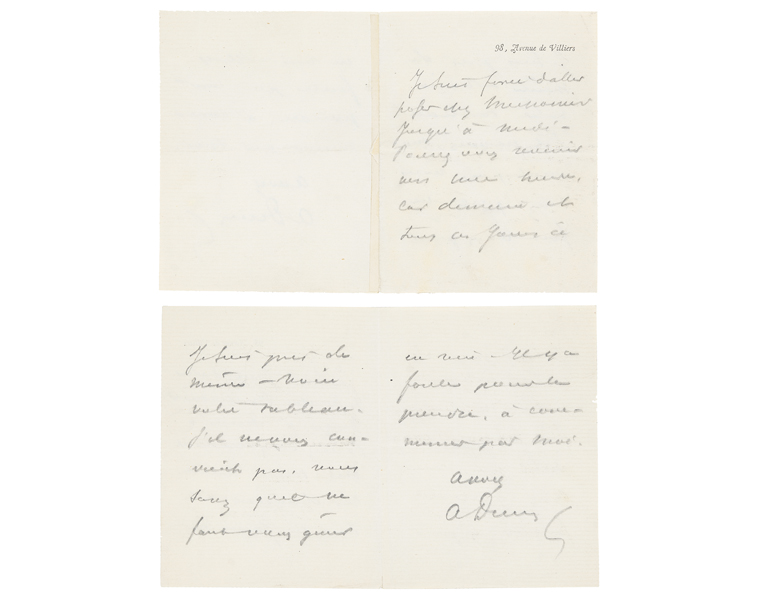 98, Avenue de Villiers
Je suis forcé d'aller
poser chez Meissonier
jusqu'à midi –
Pouvez vous revenir
vers une heure,
car demain et
tous ces jours ci
je suis pris de
même – Voici
votre tableau.
S'il ne vous con-
vient pas, vous
savez que il ne
faut vous gêner
en rien – Il y a
foule pour le
prendre, à com-
mencer par moi.
A vous
A Dumas